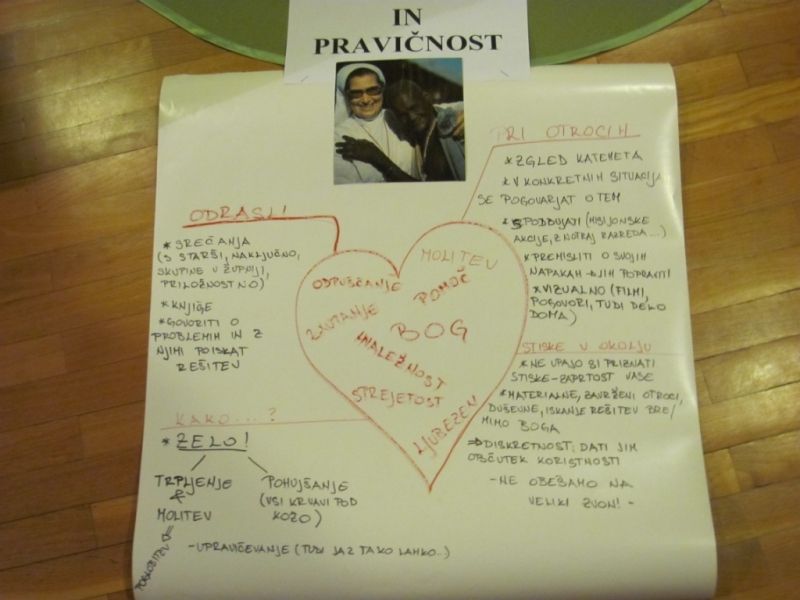 IN
PRAVIČNOST
PRI OTROCIH
* ZGLED KATEHETA
* V KONKRETNIH SITUACIJA
SE POGOVARJAT O TEM
* SPODBUJATI (MISIJONSKE
AKCIJE, ZNOTRAJ RAZREDA...)
* PREMISLITI O SVOJIH
NAPAKAH - NJIH POPRAVITI
* VIZUALNO (FILMI,
POGOVORI, TUDI DELO
DOMA)
ODRASLI
* SREČANJA
(S STARŠI, NAKLJUČNO,
SKUPINE V ŽUPNIJI,
PRILOŽNOSTNO)
* KNJIGE
* GOVORITI O
PROBLEMIH IN Z
NJIMI POISKAT
REŠITEV
MOLITEV
ODPUŠČANJE
POMOČ
ZAUPANJE
BOG
HVALEŽNOST
SPREJETOST
LJUBEZEN
STISKE V OKOLJU
* NE UPAJO SI PRIZNATI
STISKE - ZAPRTOST VASE
* MATERIALNE, ZAVRŽENI OTROCI,
DUŠEVNE, ISKANJE REŠITEV BREZ/
MIMO BOGA
⇒ DISKRETNOST: DATI JIM
OBČUTEK KORISTNOSTI
- NE OBEŠAMO NA
VELIKI ZVON! -
KAKO...?
* ZELO!
TRPLJENJE
&
MOLITEV
POHUJŠANJE
(VSI KRVAVI POD
KOŽO)
- UPRAVIČEVANJE (TUDI JAZ TAKO LAHKO..)